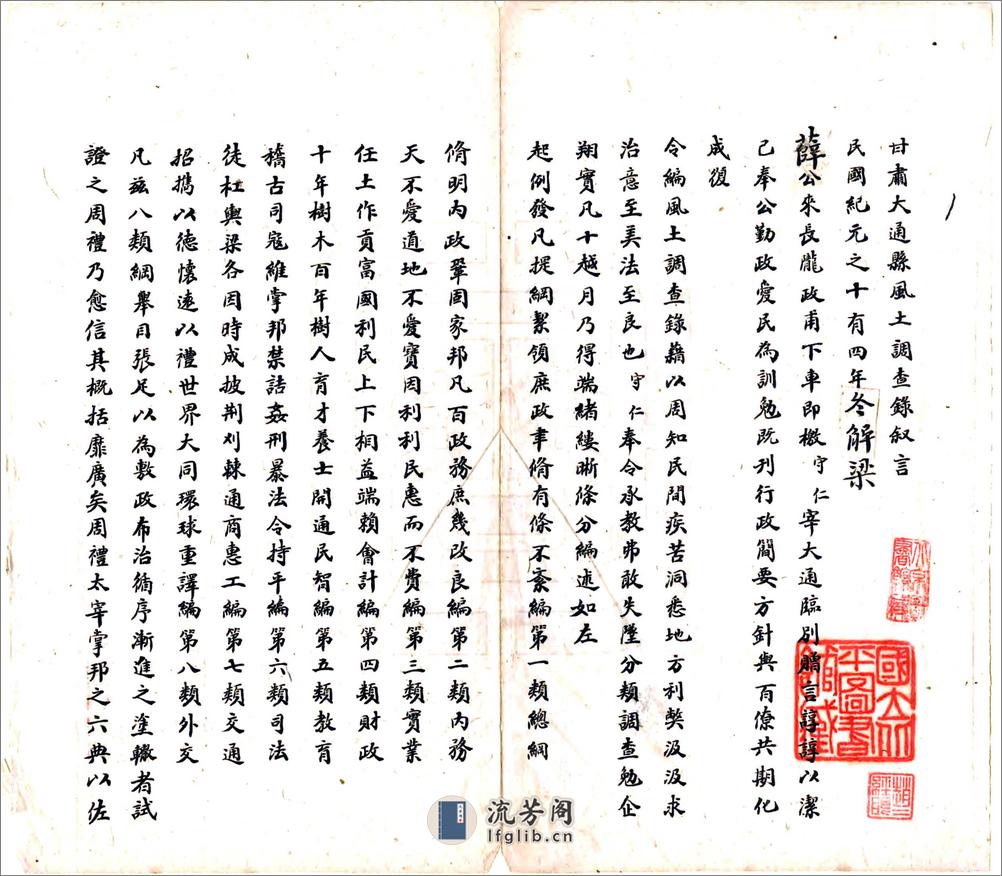 甘肅大通縣風土調查錄叙言
民國紀元之十有四年冬解梁
薛公來長隴政甫下車即檄守仁宰大通臨別贈言諄諄以潔
己奉公勤政愛民為訓勉既刊行政簡要方針與百僚共期化
成復
令編風土調查錄藉以周知民間疾苦洞悉地方利獘汲汲求
治意至美法至良也守仁奉令承教弗敢失墜分類調查勉企
翔實凡十越月乃得端緒縷晰條分編述如左
起例發凡提綱絜領庶政聿脩有條不紊編第一類總綱
脩明內政鞏固家邦凡百政務庶幾改良編第二類內務
天不愛道地不愛寶因利利民惠而不費編第三類實業
任土作貢富國利民上下相益端賴會計編第四類財政
十年樹木百年樹人育才養士開通民智編第五類教育
稽古司寇維掌邦禁詰姦刑暴法令持平編第六類司法
徒杜輿梁各因時成披荆刈棘通商惠工編第七類交通
招攜以德懷遠以禮世界大同環球重譯編第八類外交
凡茲八類綱舉目張足以為敷政布治循序漸進之塗轍者試
證之周禮乃愈信其概括靡廣矣周禮太宰掌邦之六典以佐
國立北平圖書館藏
流芳阁
lfglib.cn